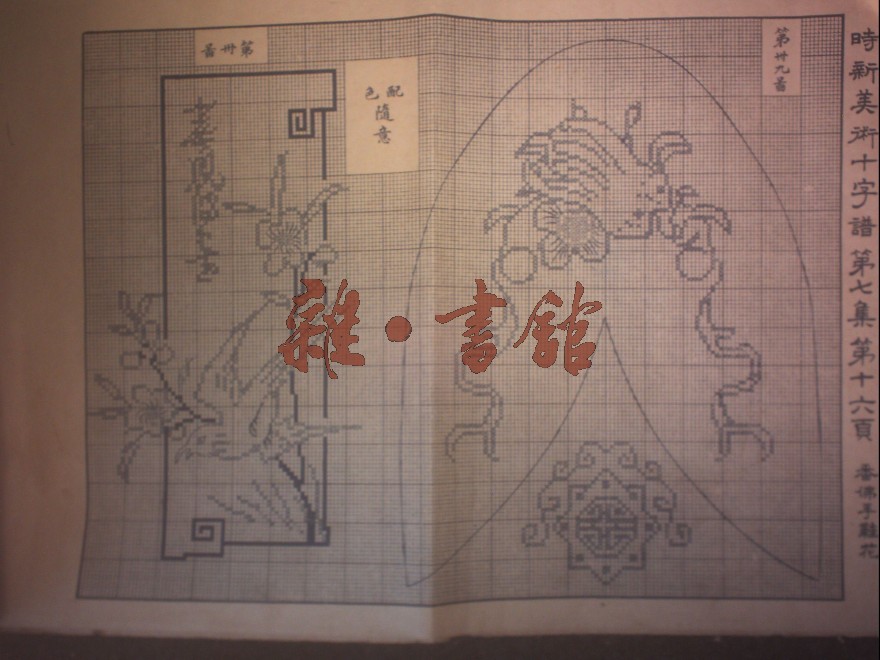 時新美術十字譜 第七集第十六頁 香佛手鞋花
第卅九圖
第卅圖
配色
隨意
雜·書館